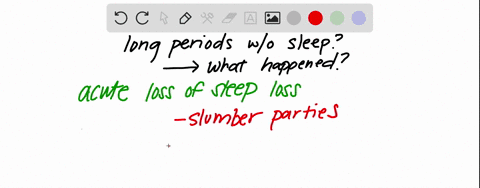 long periods w/o sleep?
→ what happened?
acute loss of sleep loss
- slumber parties